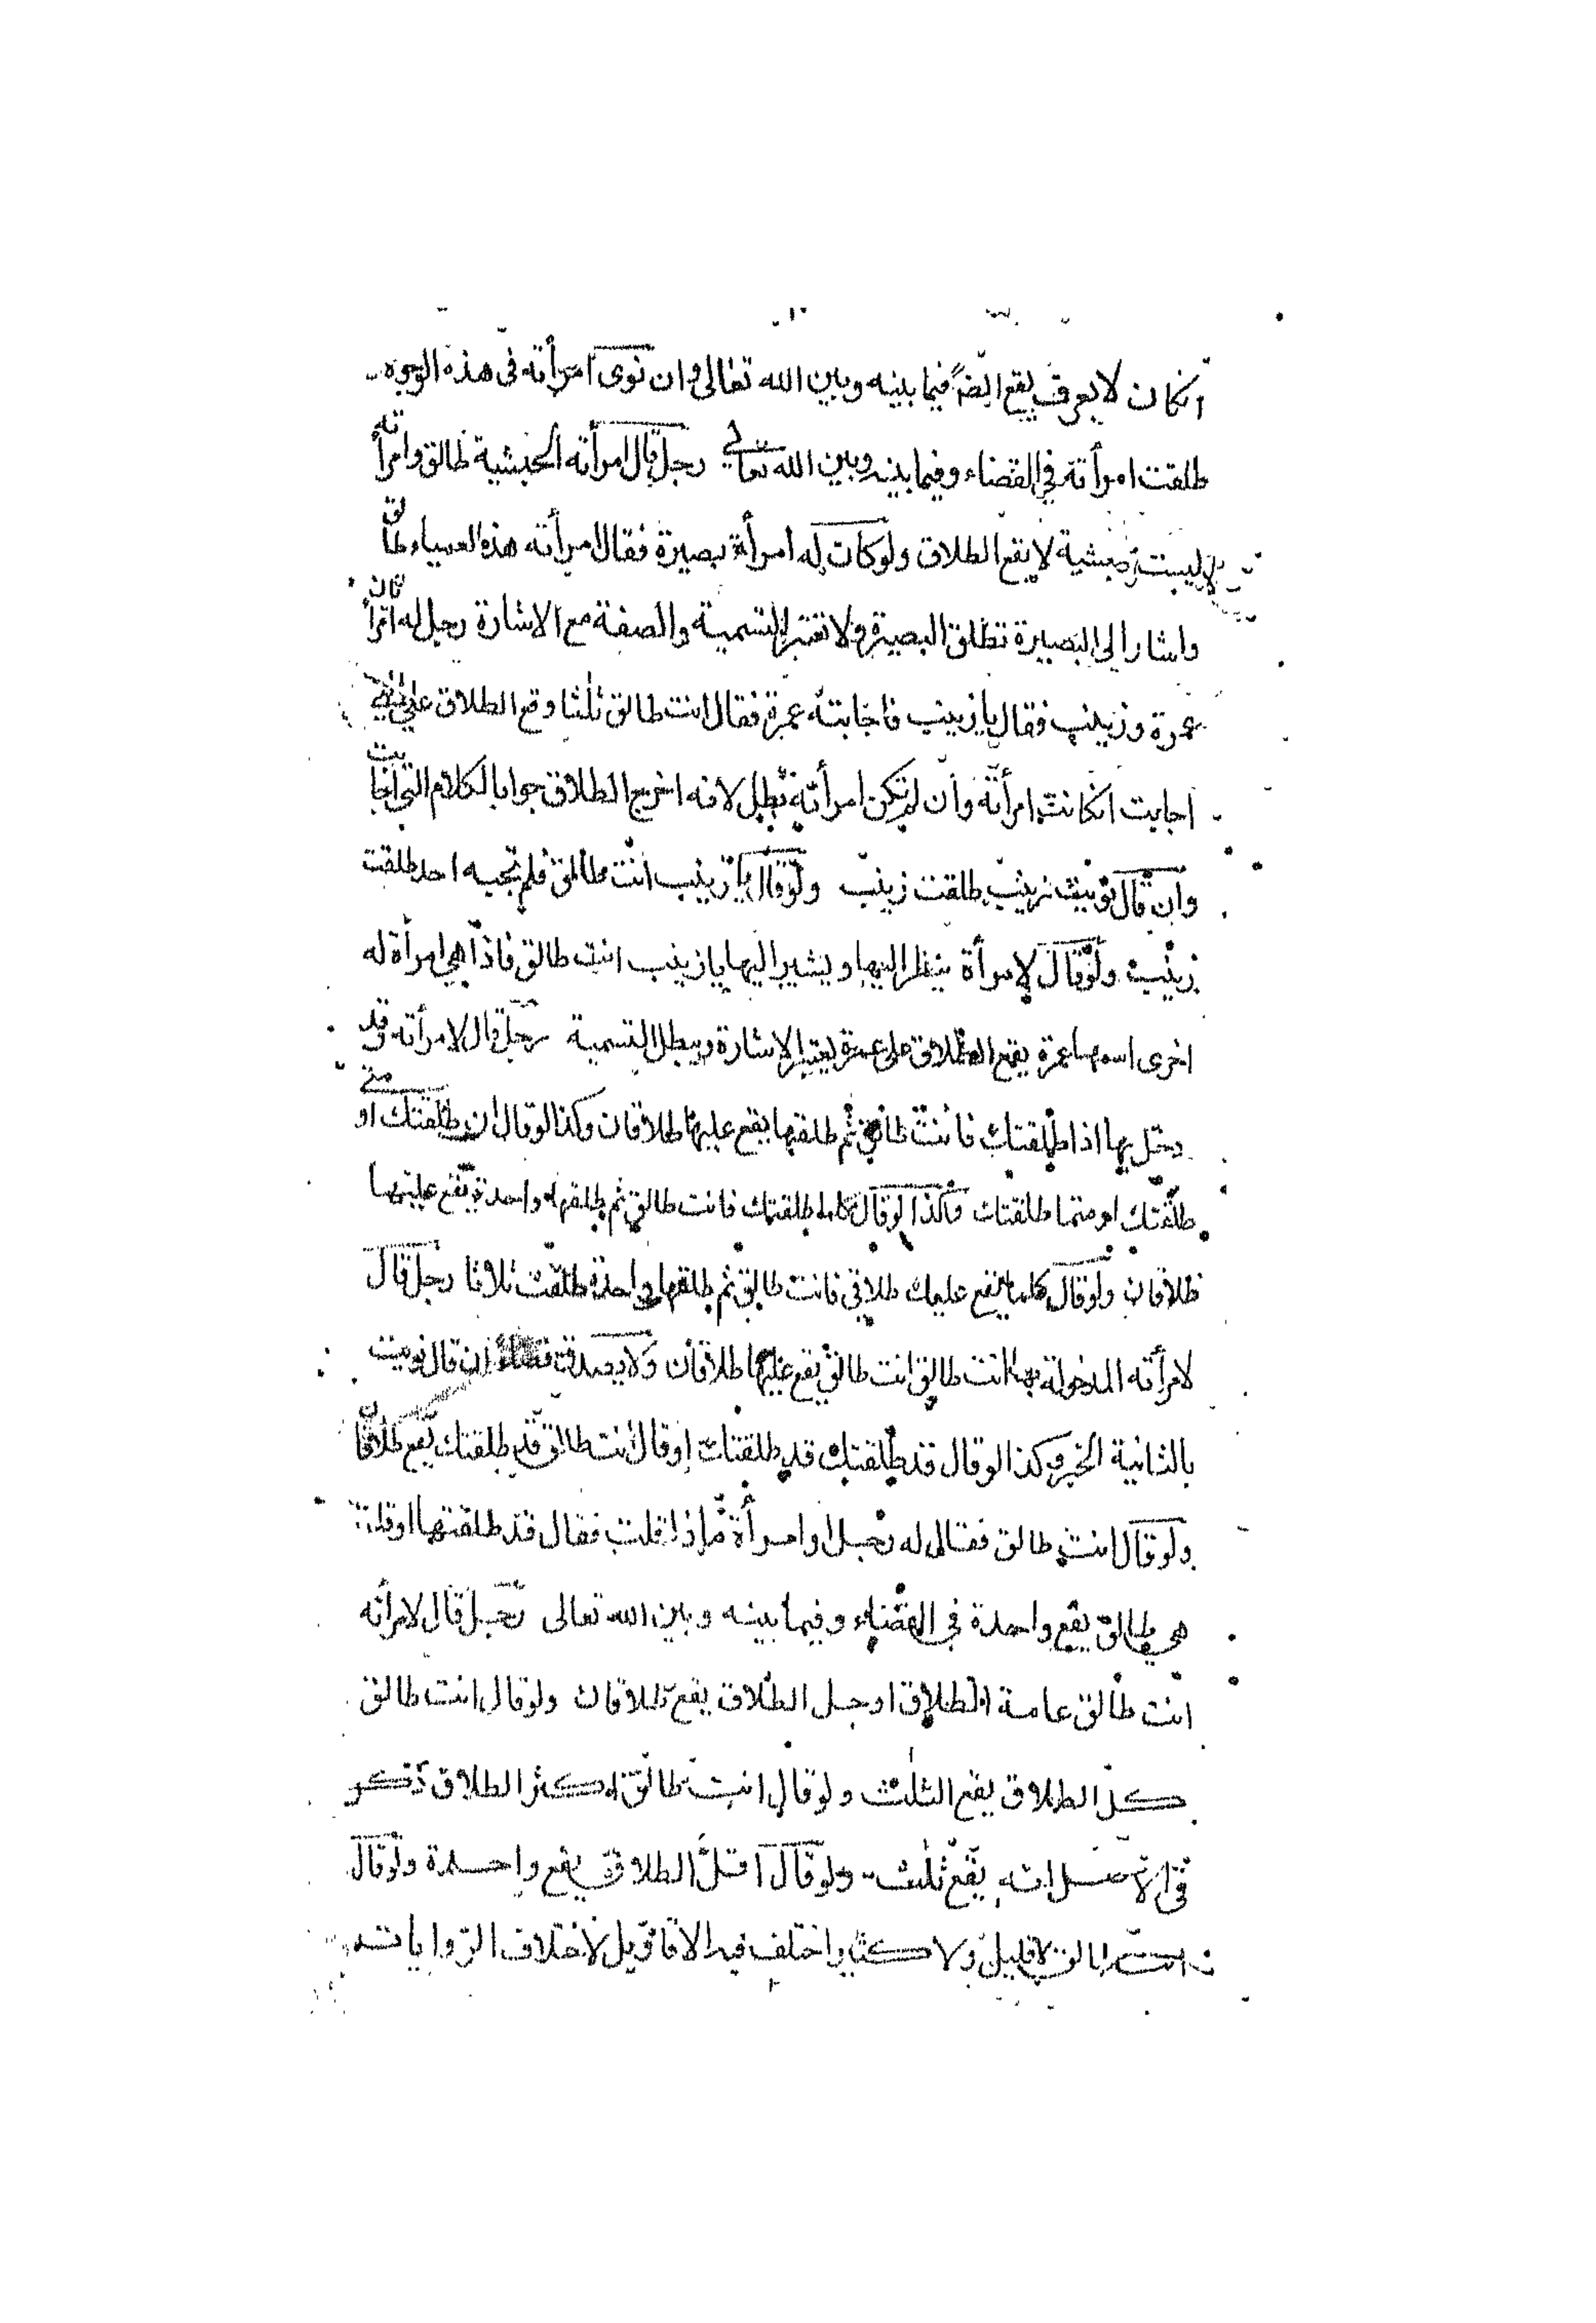 انكان لا يعرف يقع ايضاً فيما بينه وبين الله تعالى وان نوى امرأته فى هذه الوجوه
طلقت امرأته فى القضاء وفيما بينه وبين الله تعالى رجل قال امرأته الحبشية طالق وامرأته
ليست بحبشية لا يقع الطلاق ولو كانت له امرأة بصيرة فقال امرأته هذه العمياء طالق
واشار الى البصيرة تطلق البصيرة ولا تعتبر التسمية والصفة مع الاشارة رجل له امرأتان
عمرة وزينب فقال يا زينب فاجابته عمرة فقال انت طالق ثلثا وقع الطلاق على التى
اجابت انكانت امرأته وان لم تكن امرأته بطل لانه اخرج الطلاق جوابا لكلام التى اجابت
وان قال نويت زينب طلقت زينب ولو قال يا زينب انت طالق فلم تجبه احد طلقت
زينب ولو قال لامرأة ينظر اليها ويشير اليها يا زينب انت طالق فاذا هى امرأة له
اخرى اسمها عمرة يقع الطلاق على عمرة يعتبر الاشارة ويبطل التسمية رجل قال لامرأته وقد
دخل بها اذا طلقتك فانت طالق ثم طلقها يقع عليها طلاقان وكذا لو قال ان طلقتك او متى
طلقتك او متما طلقتك وكذا لو قال كلما طلقتك فانت طالق ثم طلقها واحدة يقع عليها
طلاقان ولو قال كلما يقع عليك طلاقى فانت طالق ثم طلقها واحدة طلقت ثلاثا رجل قال
لامرأته المدخولة بها انت طالق انت طالق يقع عليها طلاقان ولا يصدق قضاء ان قال نويت
بالثانية الخبر وكذا لو قال قد طلقتك قد طلقتك او قال انت طالق قد طلقتك يقع طلاقان
ولو قال انت طالق فقال له رجل او امرأة ماذا قلت فقال قد طلقتها او قلت
هى طالق يقع واحدة فى القضاء وفيما بينه وبين الله تعالى رجل قال لامرأته
انت طالق عامة الطلاق او جل الطلاق يقع طلاقان ولو قال انت طالق
كل الطلاق يقع الثلث ولو قال انت طالق اكثر الطلاق ذكر
فى الاصل انه يقع ثلث ولو قال اقل الطلاق يقع واحدة ولو قال
انت طالق لا قليل ولا كثير واختلف فيه الاقاويل لاختلاف الروايات